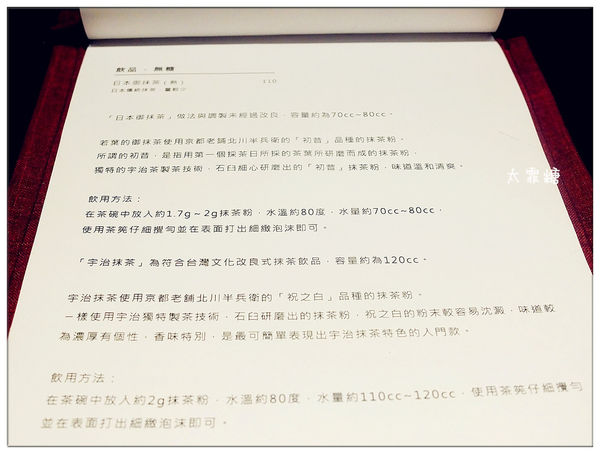 飲品．無糖
日本御抹茶（熱） 110
日本傳統抹茶．量較少
「日本御抹茶」做法與調製未經過改良，容量約為70cc~80cc。
若葉的御抹茶使用京都老舖北川半兵衛的「初昔」品種的抹茶粉。
所謂的初昔，是指用第一個採茶日所採的茶葉所研磨而成的抹茶粉，
獨特的宇治茶製茶技術，石臼細心研磨出的「初昔」抹茶粉，味道溫和清爽。
飲用方法：
在茶碗中放入約1.7g~2g抹茶粉，水溫約80度，水量約70cc~80cc，
使用茶筅仔細攪勻並在表面打出細緻泡沫即可。
「宇治抹茶」為符合台灣文化改良式抹茶飲品，容量約為120cc。
宇治抹茶使用京都老舖北川半兵衛的「祝之白」品種的抹茶粉。
一樣使用宇治獨特製茶技術，石臼研磨出的抹茶粉，祝之白的粉末較容易沈澱，味道較
為濃厚有個性，香味特別，是最可簡單表現出宇治抹茶特色的入門款。
飲用方法：
在茶碗中放入約2g抹茶粉，水溫約80度，水量約110cc~120cc，使用茶筅仔細攪勻
並在表面打出細緻泡沫即可。
太霏糖